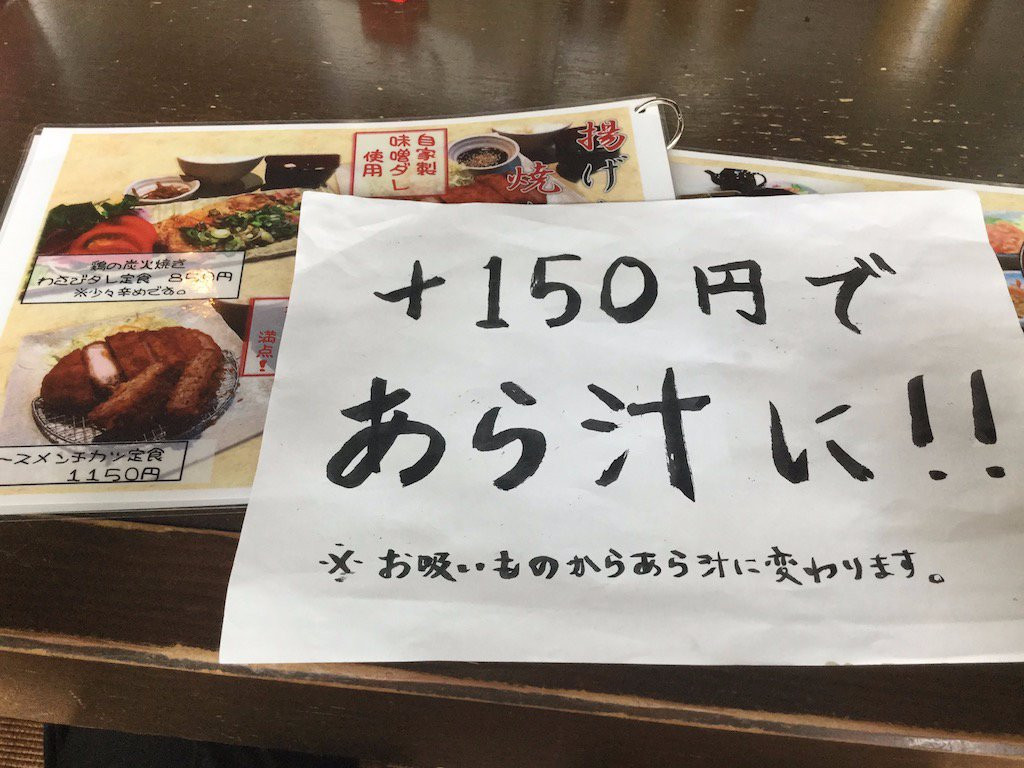 自家製
味噌ダレ
使用
揚げ
焼
鶏の炭火焼き
わさびダレ定食 850円
※少々辛めです。
満点!
ースメンチカツ定食
1150円
+150円で
あら汁に!!
※お吸いものからあら汁に変わります。